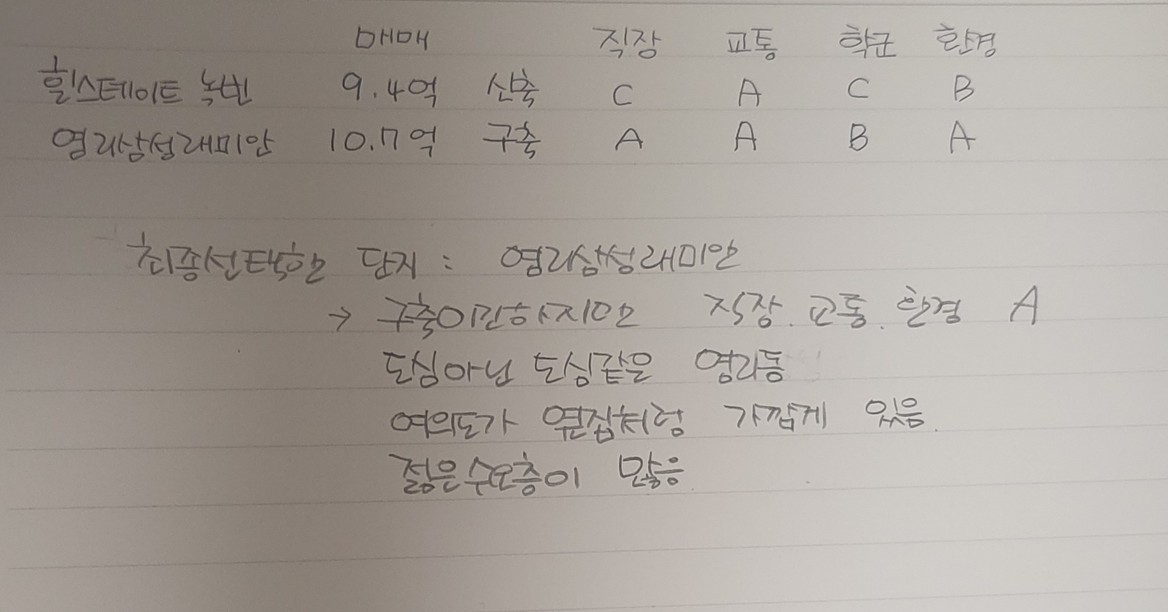 매매 직장 교통 학군 환경
힐스테이트 녹번 9.4억 신축 C A C B
영리삼성래미안 10.7억 구축 A A B A
최종선택한 단지 : 영리삼성래미안
→ 구축이긴하지만 직장. 교통. 환경 A
도심아닌 도심같은 영리동
여의도가 옆집처럼 가깝게 있음.
젊은수요층이 많음